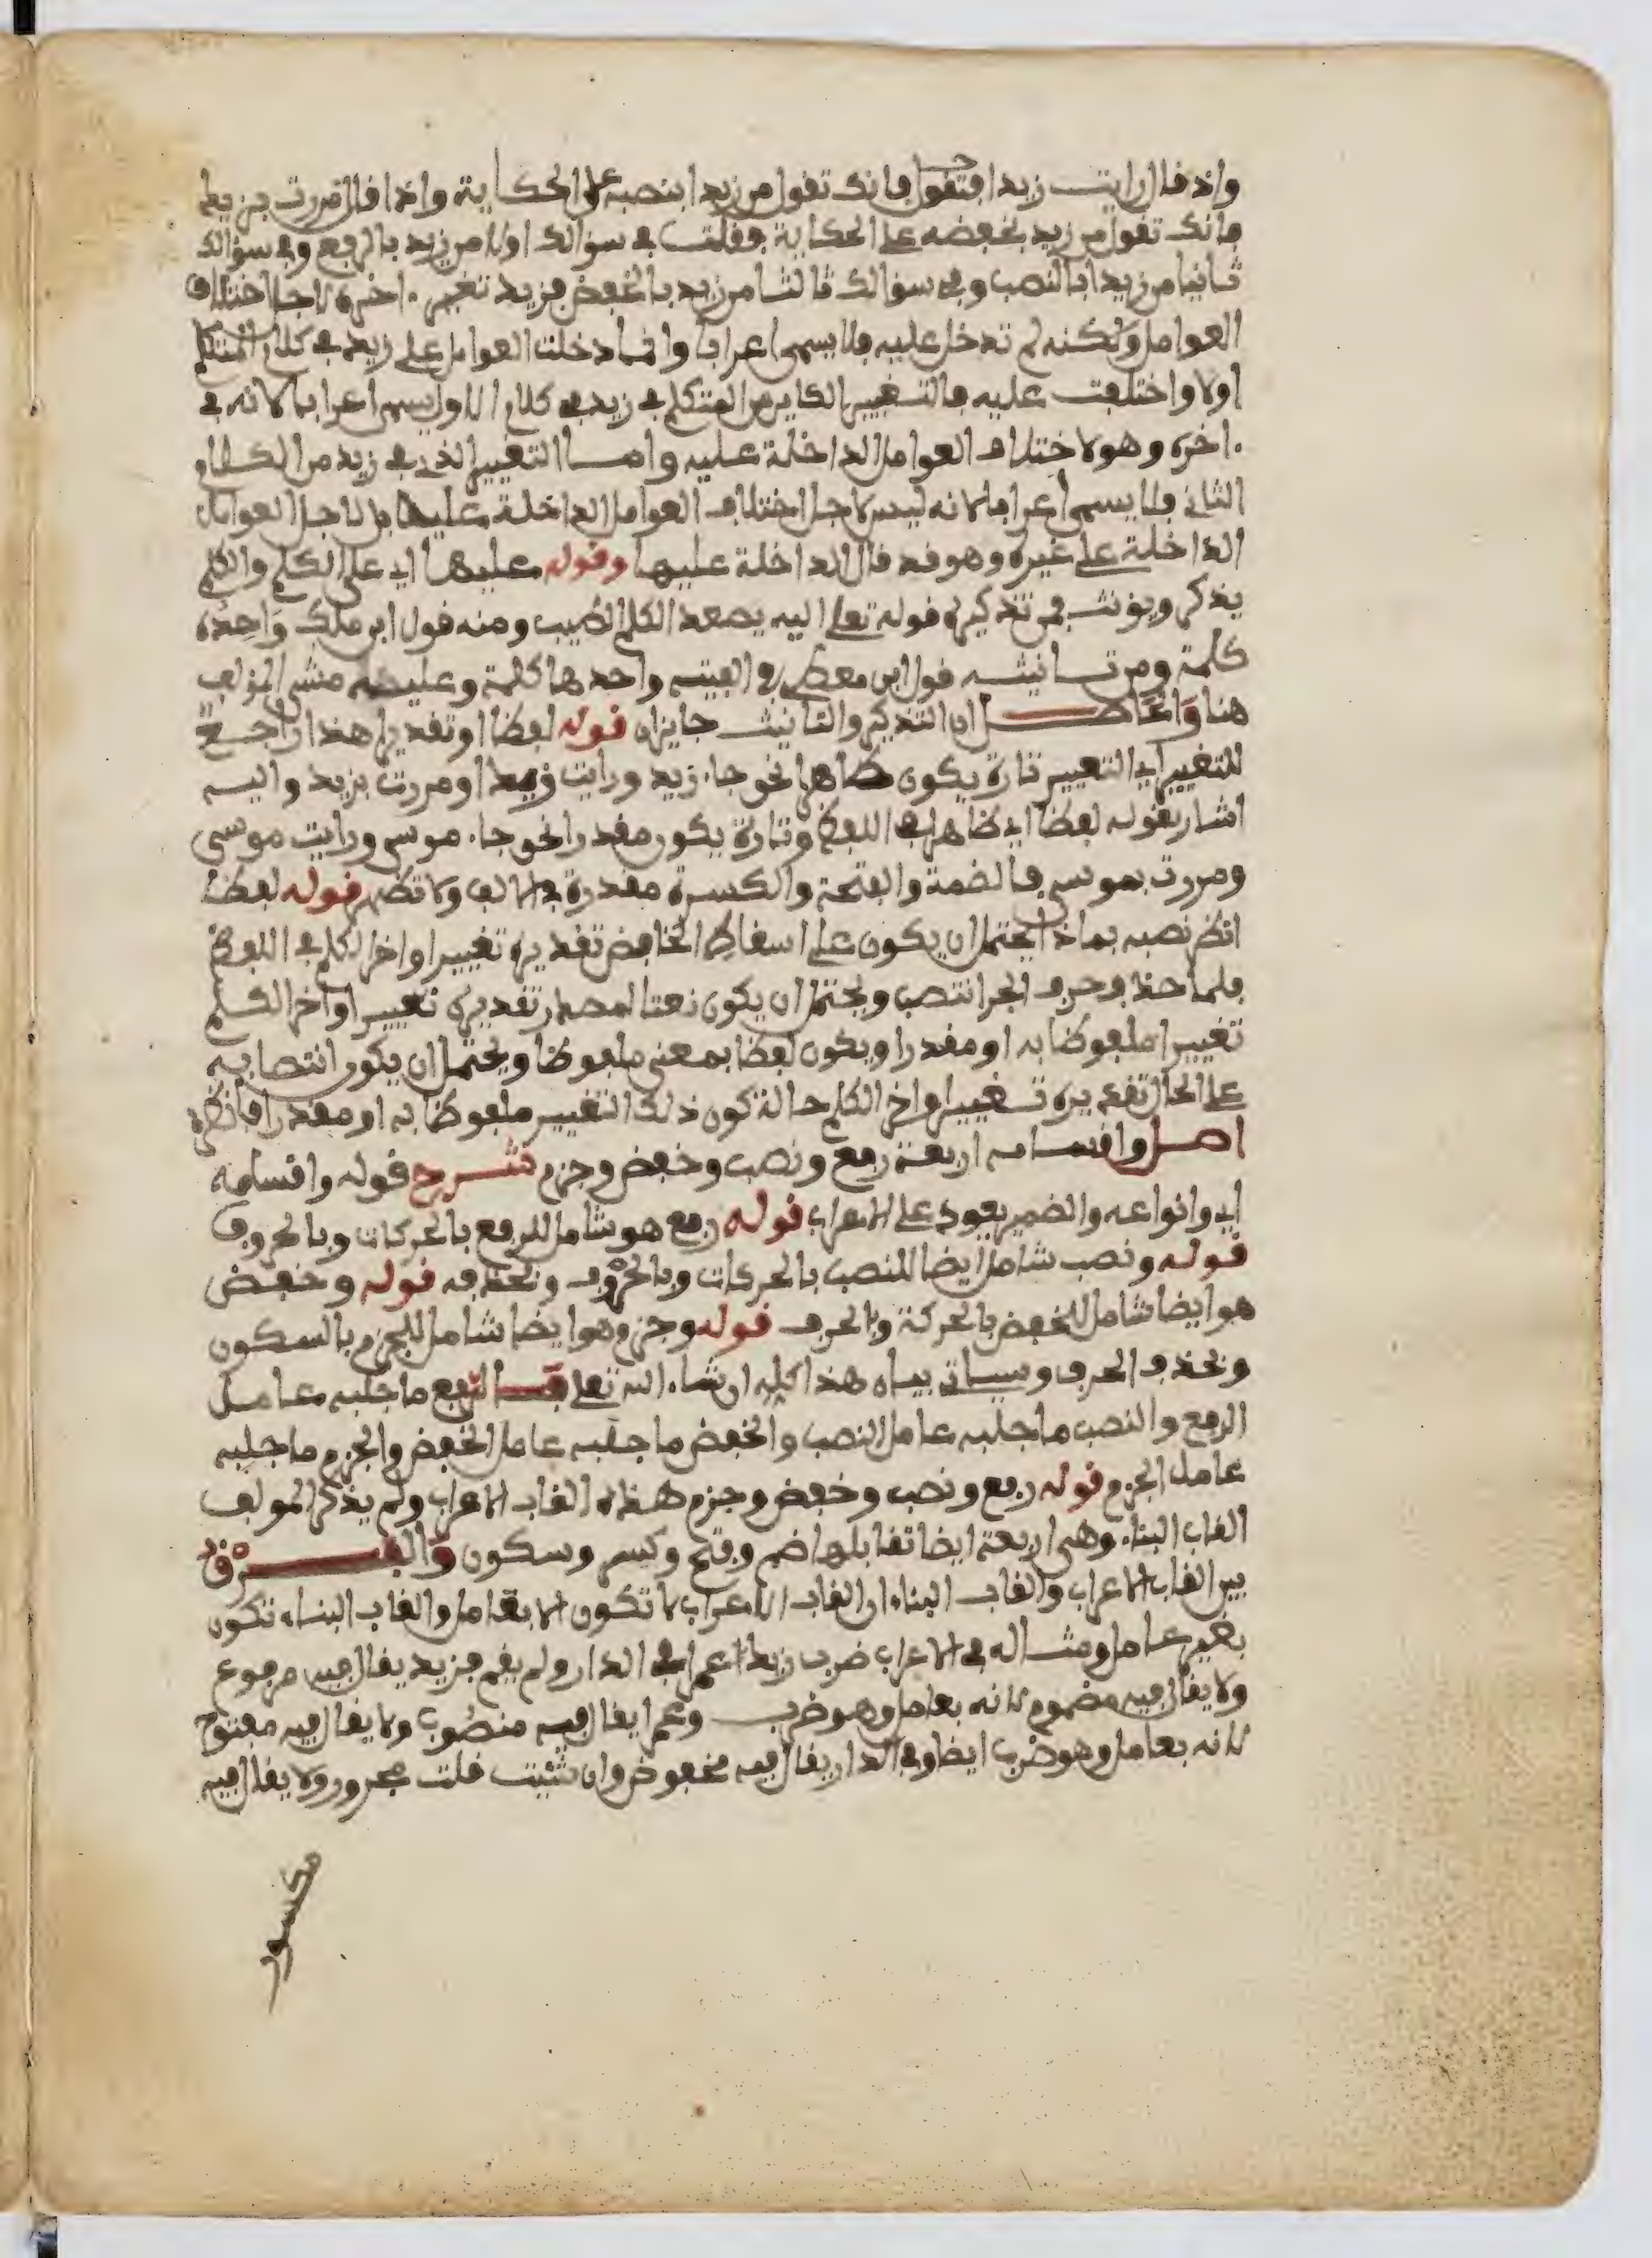 واذ قال رايت زيدا فتقول فانك تقول من زيدا بنصبه على الحكاية واذا قال مررت بزيد
فانك تقول من زيد بخفضه على الحكاية فقلت في سؤالك اولا من زيد بالرفع وفي سؤالك
ثانيا من زيدا بالنصب وفي سؤالك ثالثا من زيد بالخفض فزيد تغير ءاخره لاجل اختلاف
العوامل ولكنه لم تدخل عليه فلا يسمى اعرابا وانما دخلت العوامل على زيد في كلام المتكلم
اولا واختلفت عليه فالتغيير الكاين من المتكلم في زيد في كلام الاول يسمى اعرابا لانه في
ءاخره وهو لاختلاف العوامل الداخلة عليه واما التغيير الذي في زيد من الكلام
الثاني فلا يسمى اعرابا لانه ليس لاجل اختلاف العوامل الداخلة عليها بل لاجل العوامل
الداخلة على غيره وهو قد قال الداخلة عليها وقوله عليها اي على الكلم والكلم
يذكر ويؤنث فمن تذكيره قوله تعلى اليه يصعد الكلم الطيب ومنه قول ابن ملك واحده
كلمة ومن تانيثه قول ابن معطي في الفيته واحدها كلمة وعليه مشى المؤلف
هنا والحاصل ان التذكير والتانيث جايزان قوله لفظا او تقديرا هذا راجع
للتغيير اي التغيير تارة يكون ظاهرا نحو جاء زيد ورايت زيدا ومررت بزيد واليه
اشار بقوله لفظا اي ظاهرا في اللفظ وتارة يكون مقدرا نحو جاء موسى ورايت موسى
ومررت بموسى فالضمة والفتحة والكسرة مقدرة في الالف ولا تظهر قوله لفظا
انظر نصبه بماذا يحتمل ان يكون على اسقاط الخافض تقديره تغيير اواخر الكلم في اللفظ
فلما حذف حرف الجر انتصب ويحتمل ان يكون نعتا لمصدر تقديره تغيير اواخر الكلم
تغييرا ملفوظا به او مقدرا ويكون لفظا بمعنى ملفوظا ويحتمل ان يكون انتصابه
على الحال تقديره تغيير اواخر الكلم حالة كون ذلك التغيير ملفوظا به او مقدرا فانظره
اصل واقسامه اربعة رفع ونصب وخفض وجزم شرح قوله واقسامه
اي وانواعه والضمير يعود على الاعراب قوله رفع هو شامل للرفع بالحركات وبالحروف
قوله ونصب شامل ايضا للنصب بالحركات وبالحروف وبحذفه قوله وخفض
هو ايضا شامل للخفض بالحركة وبالحرف قوله وجزم وهو ايضا شامل للجزم بالسكون
وبحذف الحرف وسياتي بيان هذا كله ان شاء الله تعلى الرفع ما جلبه عامل
الرفع والنصب ما جلبه عامل النصب والخفض ما جلبه عامل الخفض والجزم ما جلبه
عامل الجزم قوله رفع ونصب وخفض وجزم هذه القاب الاعراب ولم يذكر المولف
القاب البناء وهي اربعة ايضا تقابلها ضم وفتح وكسر وسكون والفرق
بين القاب الاعراب والقاب البناء ان القاب الاعراب لا تكون الا بعامل والقاب البناء تكون
بغير عامل ومثاله في الاعراب ضرب زيد عمرا في الدار ولم يقم فزيد يقال فيه مرفوع
ولا يقال فيه مضموم لانه بعامل وهو ضرب وعمرا يقال فيه منصوب ولا يقال فيه مفتوح
لانه بعامل وهو ضرب ايضا وفي الدار يقال فيه مخفوض وان شئت قلت مجرور ولا يقال فيه
مكسور